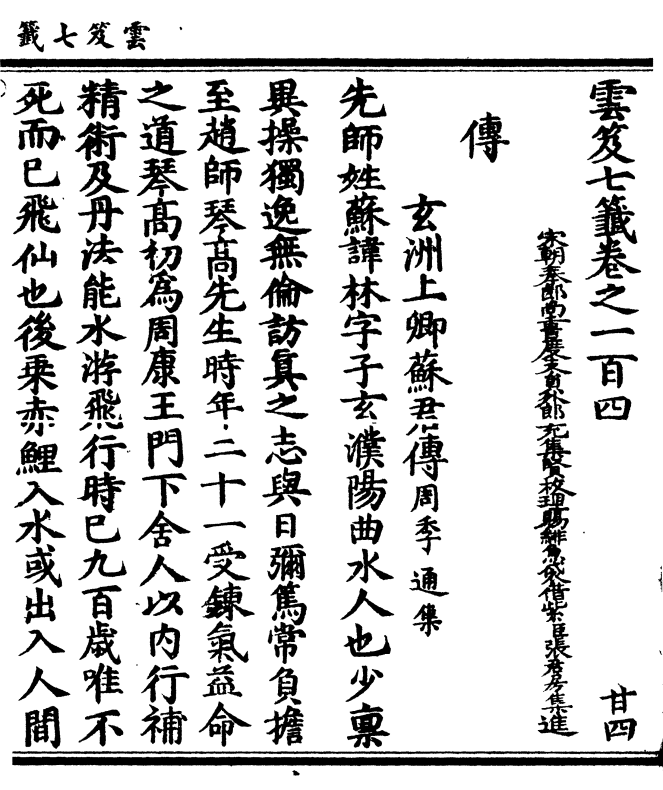 雲笈七籤
雲笈七籤卷之一百四 廿四
宋朝奉郎尚書度支員外郎充集賢校理賜緋魚袋借紫臣張君房集進
傳
玄洲上卿蘇君傳周季通集
先師姓蘇諱林字子玄濮陽曲水人也少禀
異操獨逸無倫訪真之志與日彌篤常負擔
至趙師琴高先生時年二十一受鍊氣益命
之道琴高初爲周康王門下舍人以内行補
精術及丹法能水游飛行時已九百歲唯不
死而已飛仙也後乘赤鯉入水或出入人間